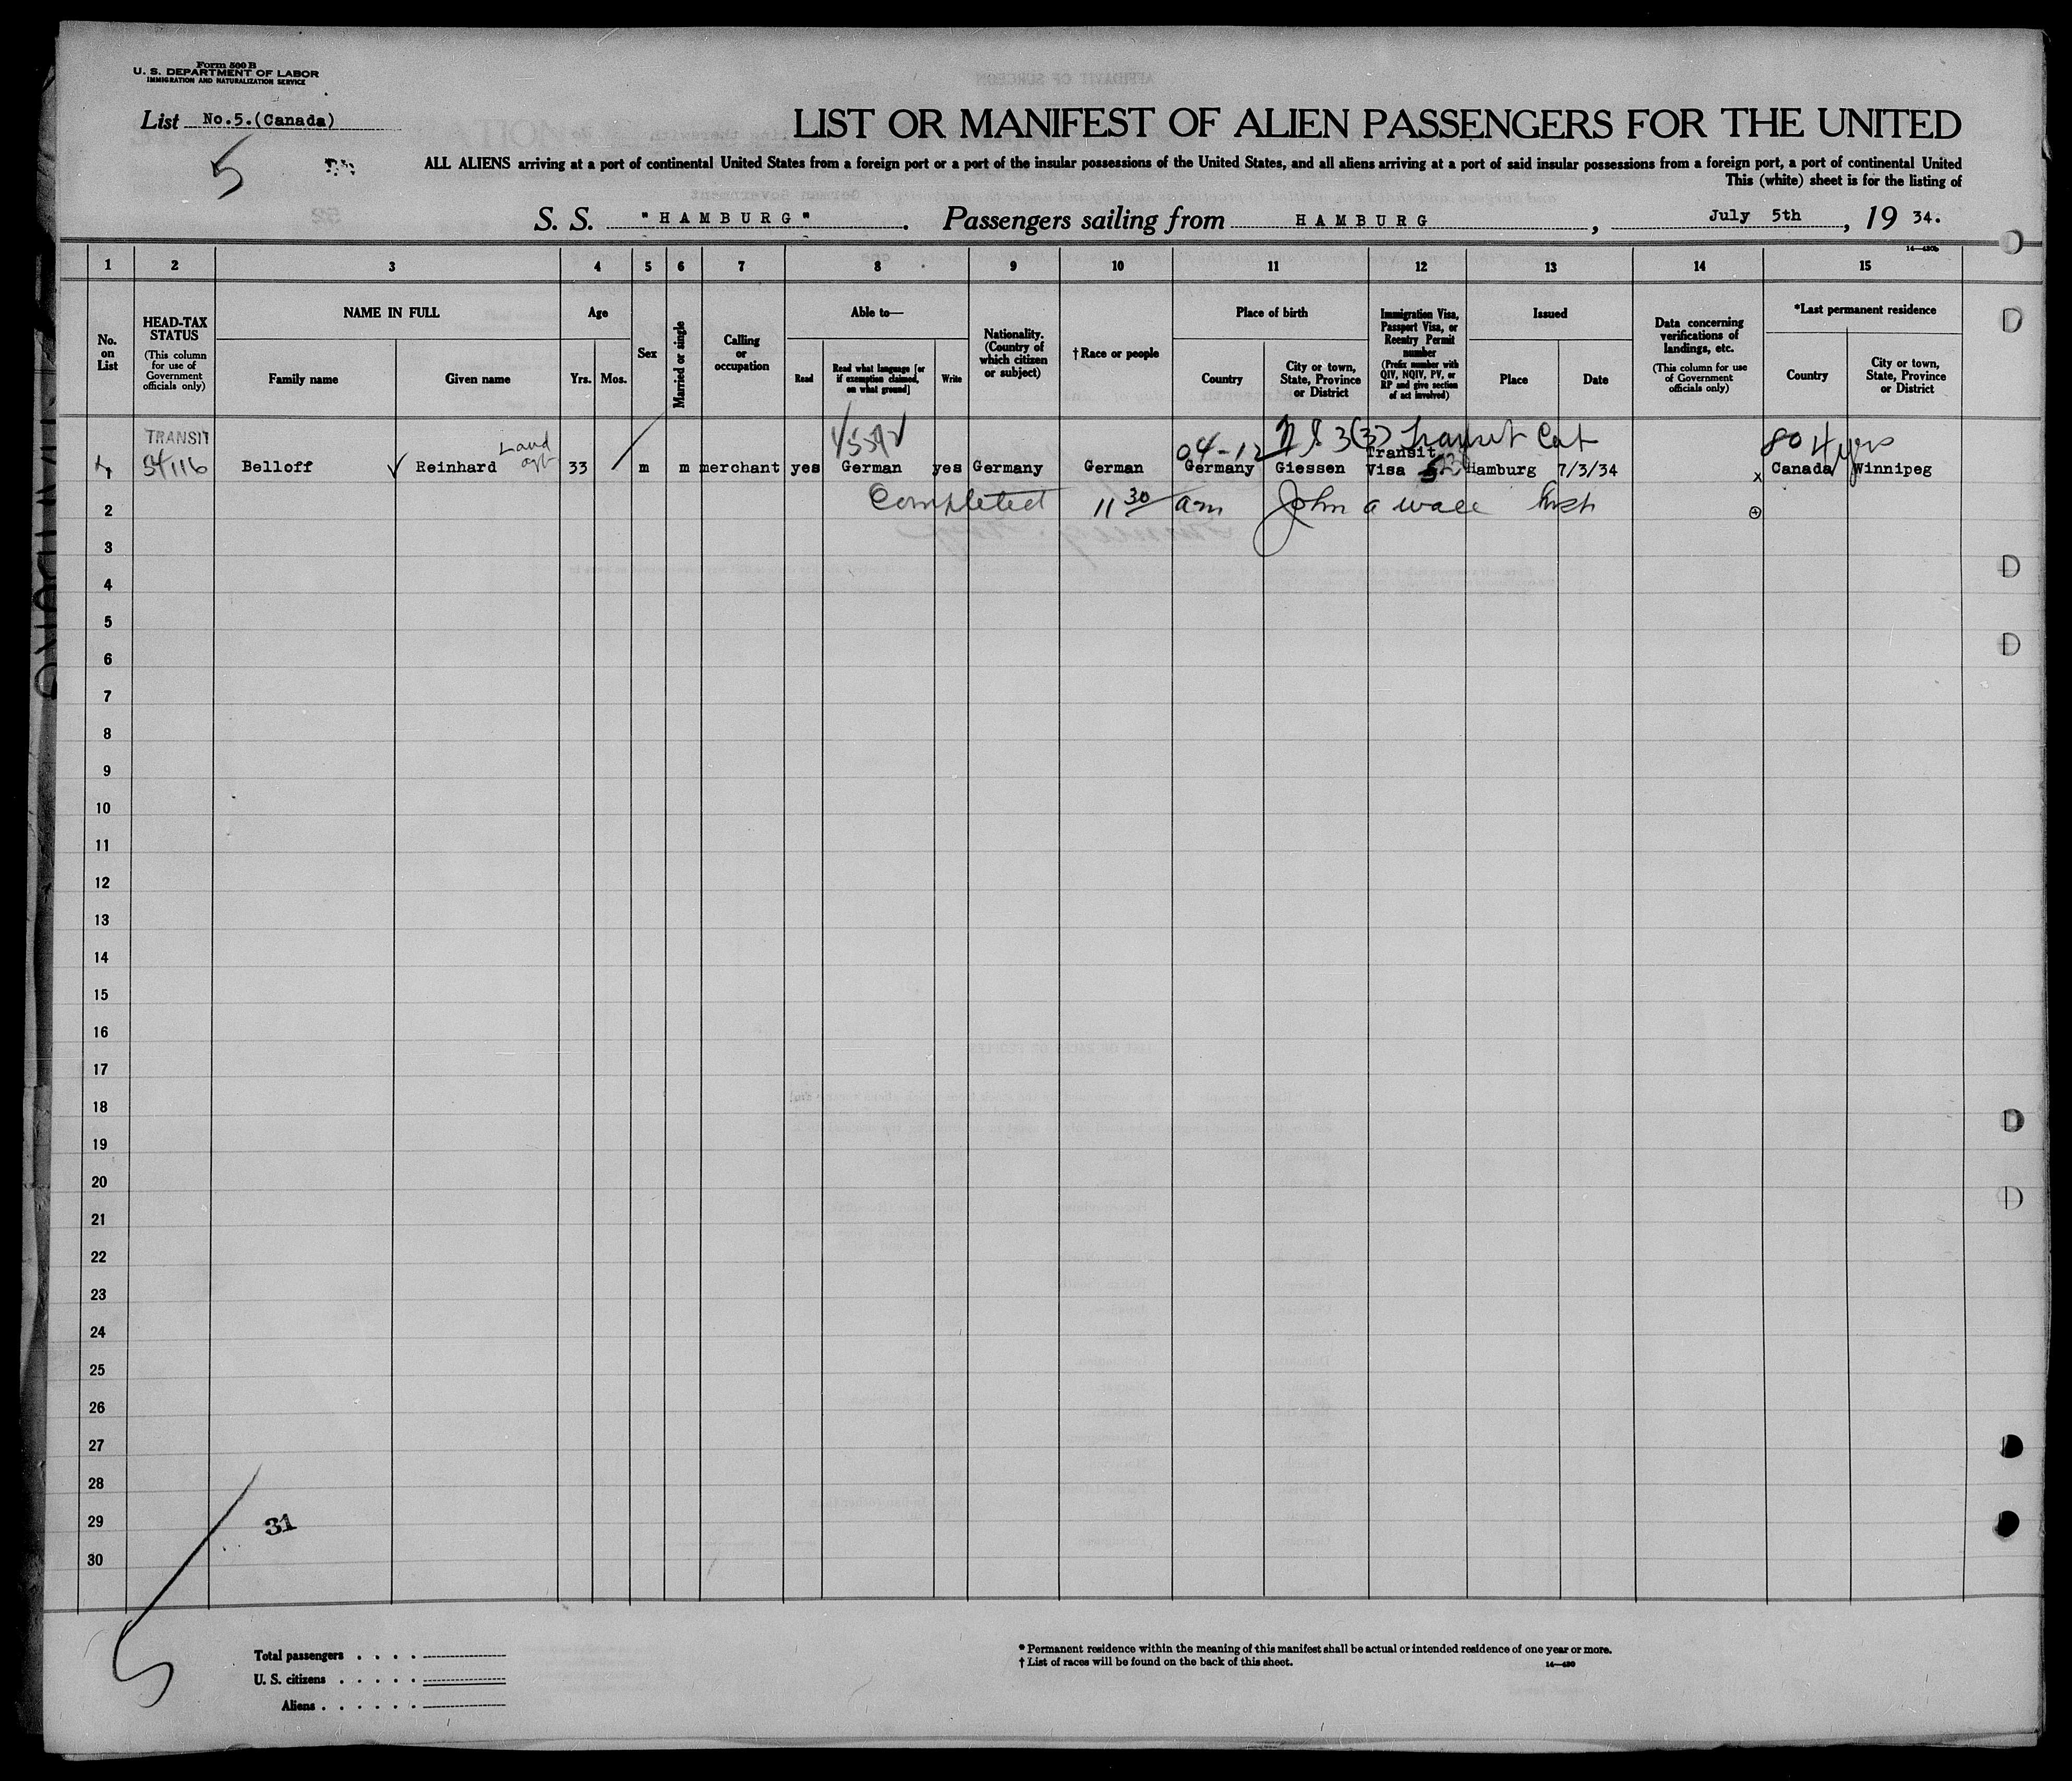 Form 500 B
U. S. DEPARTMENT OF LABOR
IMMIGRATION AND NATURALIZATION SERVICE
List No.5.(Canada)
5
LIST OR MANIFEST OF ALIEN PASSENGERS FOR THE UNITED
ALL ALIENS arriving at a port of continental United States from a foreign port or a port of the insular possessions of the United States, and all aliens arriving at a port of said insular possessions from a foreign port, a port of continental United
This (white) sheet is for the listing of
S. S. "HAMBURG". Passengers sailing from HAMBURG, July 5th, 19 34.
1 2 3 4 5 6 7 8 9 10 11 12 13 14 15
No. on List
HEAD-TAX STATUS
(This column for use of Government officials only)
NAME IN FULL
Family name
Given name
Age
Yrs. Mos.
Sex
Married or single
Calling or occupation
Able to—
Read
Read what language [or if exemption claimed, on what ground]
Write
Nationality. (Country of which citizen or subject)
†Race or people
Place of birth
Country
City or town, State, Province or District
Immigration Visa, Passport Visa, or Reentry Permit number
(Prefix number with QIV, NQIV, PV, or RP and give section of act involved)
Issued
Place
Date
Data concerning verifications of landings, etc.
(This column for use of Government officials only)
*Last permanent residence
Country
City or town, State, Province or District
TRANSIT
3(3) Transit Cat
80 4 yrs
Land agt
Transit
Belloff Reinhard 33 m m merchant yes German yes Germany German Germany Giessen Visa Hamburg 7/3/34 x Canada Winnipeg
Completed 11 30 am John a
2
3
4
5
6
7
8
9
10
11
12
13
14
15
16
17
18
19
20
21
22
23
24
25
26
27
28
29
30
31
5
Total passengers . . . .
U. S. citizens . . . . .
Aliens . . . . . .
* Permanent residence within the meaning of this manifest shall be actual or intended residence of one year or more.
† List of races will be found on the back of this sheet.
14—480